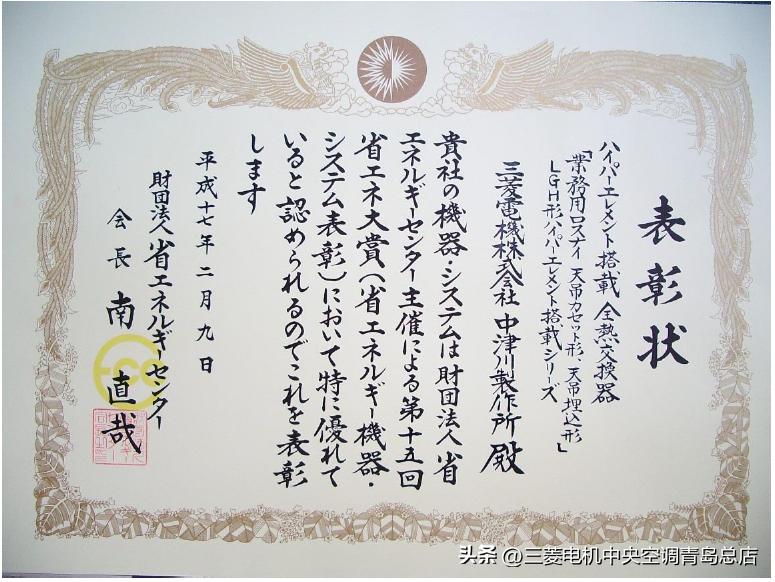 表彰状
ハイパーエレメント搭載 全熱交換器
「業務用ロスナイ 天吊カセット形、天吊埋込形
LGH形ハイパーエレメント搭載シリーズ」
三菱電機株式会社 中津川製作所 殿
貴社の機器・システムは財団法人省
エネルギーセンター主催による第十五回
省エネ大賞(省エネルギー機器・
システム表彰)において特に優れて
いると認められるのでこれを表彰
します
平成十七年二月九日
財団法人 省エネルギーセンター
会長 南 直哉
头条 @三菱电机中央空调青岛总店